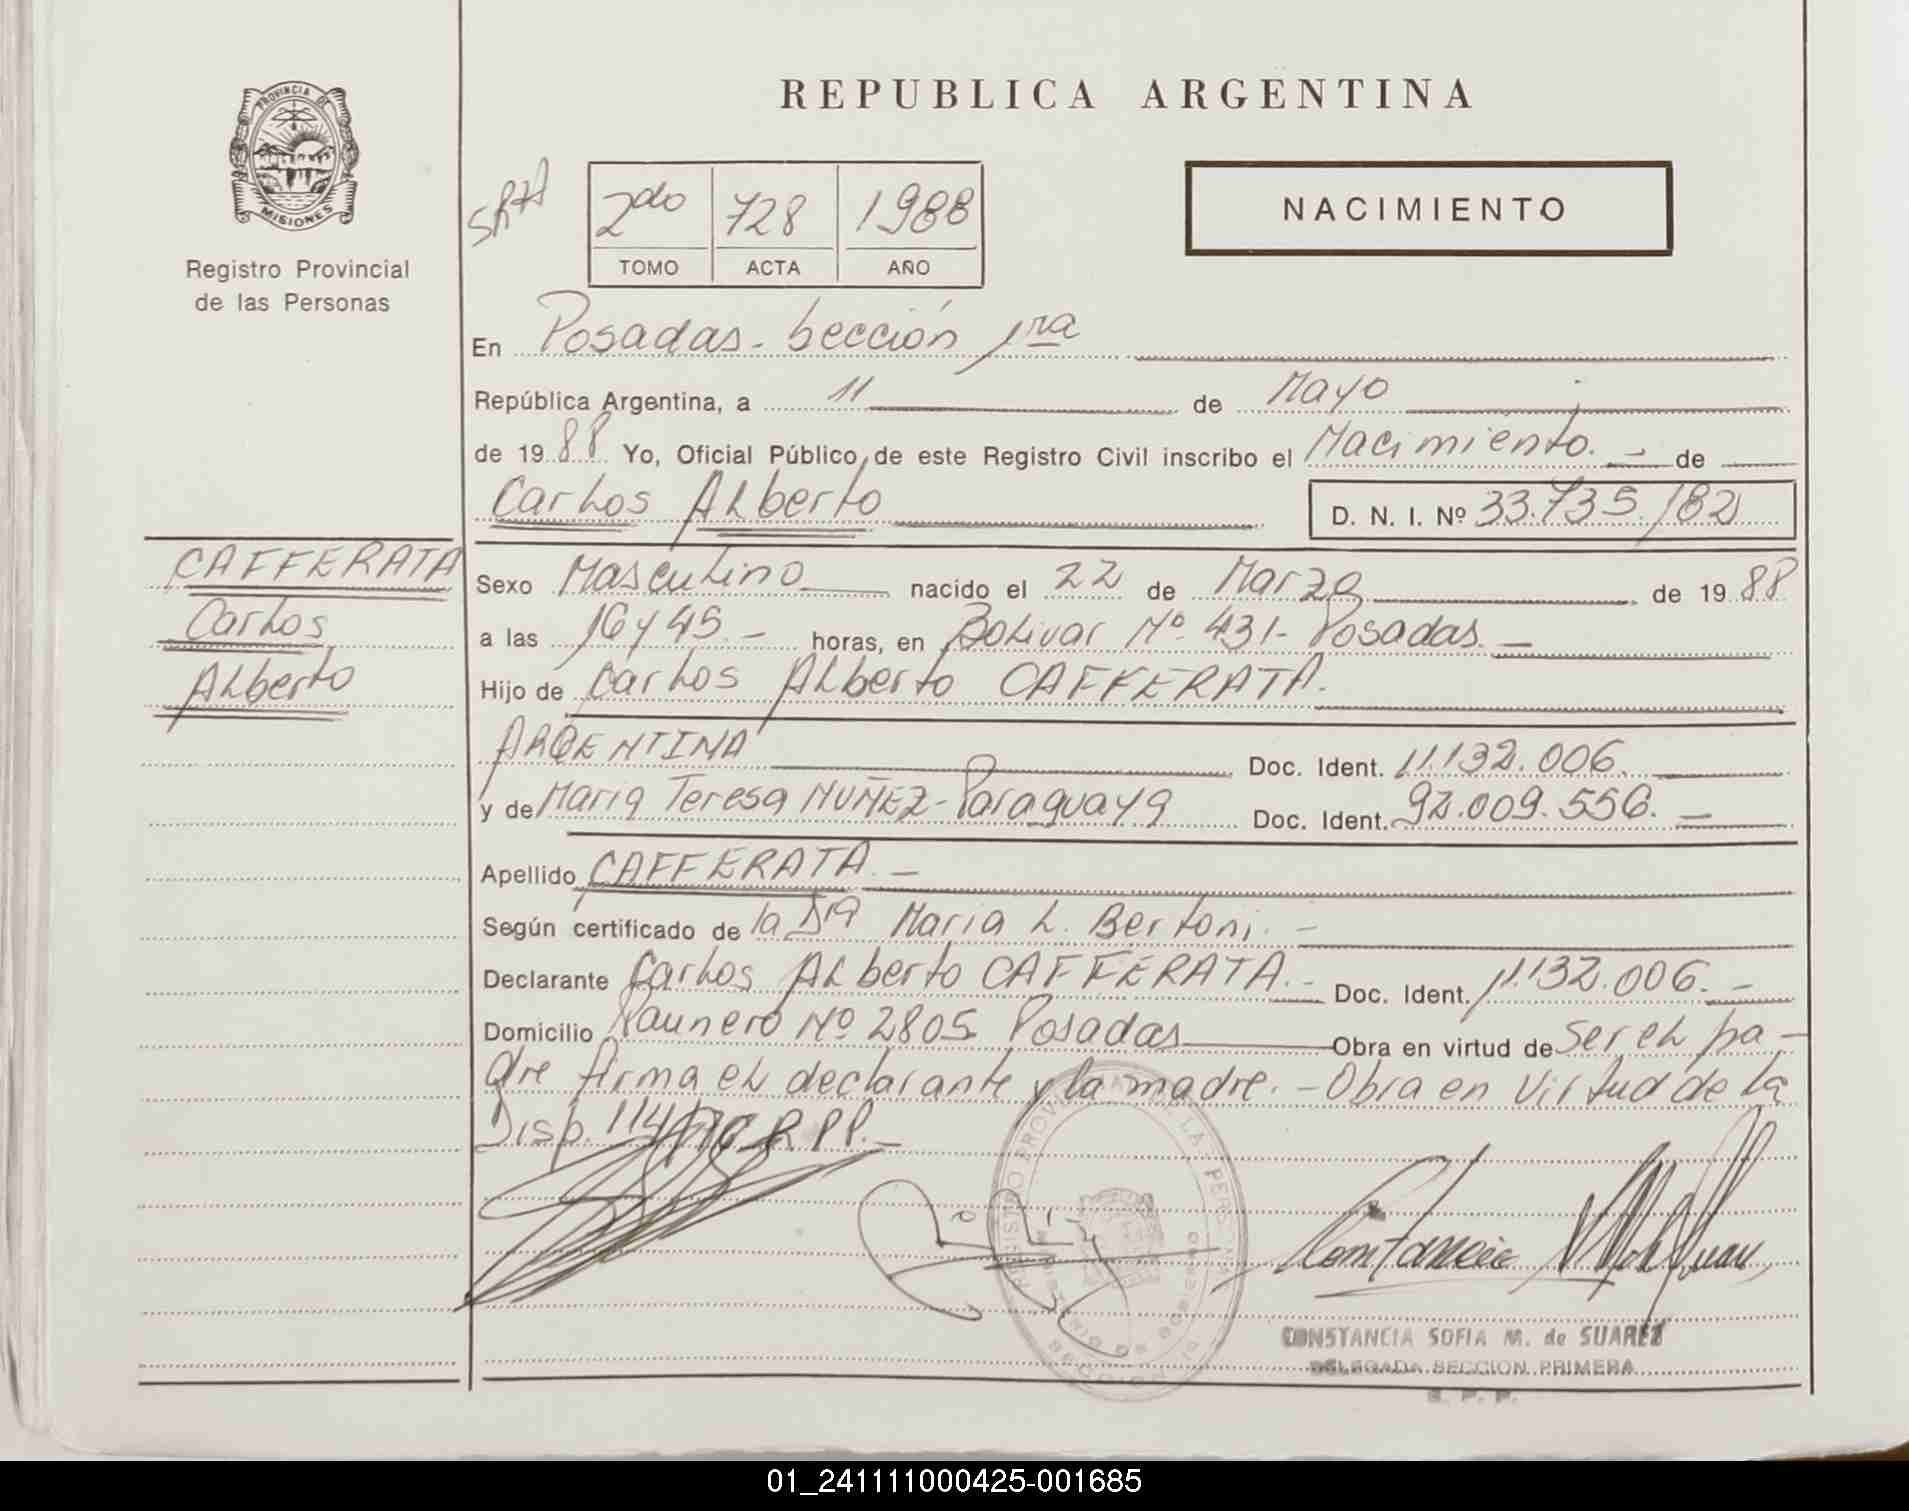 REPUBLICA ARGENTINA
PROVINCIA DE
MISIONES
Registro Provincial
de las Personas
2do 728 1988
TOMO ACTA AÑO
NACIMIENTO
En Posadas - Sección 1ra
República Argentina, a 11 de Mayo
de 1988 Yo, Oficial Público de este Registro Civil inscribo el Nacimiento. - de
Carlos Alberto D. N. I. Nº 33.735.182
CAFFERATA
Carlos
Alberto
Sexo Masculino nacido el 22 de Marzo de 1988
a las 16 y 45. - horas, en Bolivar Nº 431 - Posadas. -
Hijo de Carlos Alberto CAFFERATA.
ARGENTINA Doc. Ident. 11.132.006.
y de Maria Teresa NUÑEZ - Paraguaya Doc. Ident. 92.009.556. -
Apellido CAFFERATA. -
Según certificado de la Dra Maria L. Bertoni. -
Declarante Carlos Alberto CAFFERATA. - Doc. Ident. 11.132.006. -
Domicilio Paunero Nº 2805 Posadas Obra en virtud de Ser el pa-
dre firma el declarante y la madre. - Obra en virtud de la
Disp. 114/ R.P.P. -
CONSTANCIA SOFIA M. de SUAREZ
DELEGADA SECCION PRIMERA
R. P. P.
01_241111000425-001685